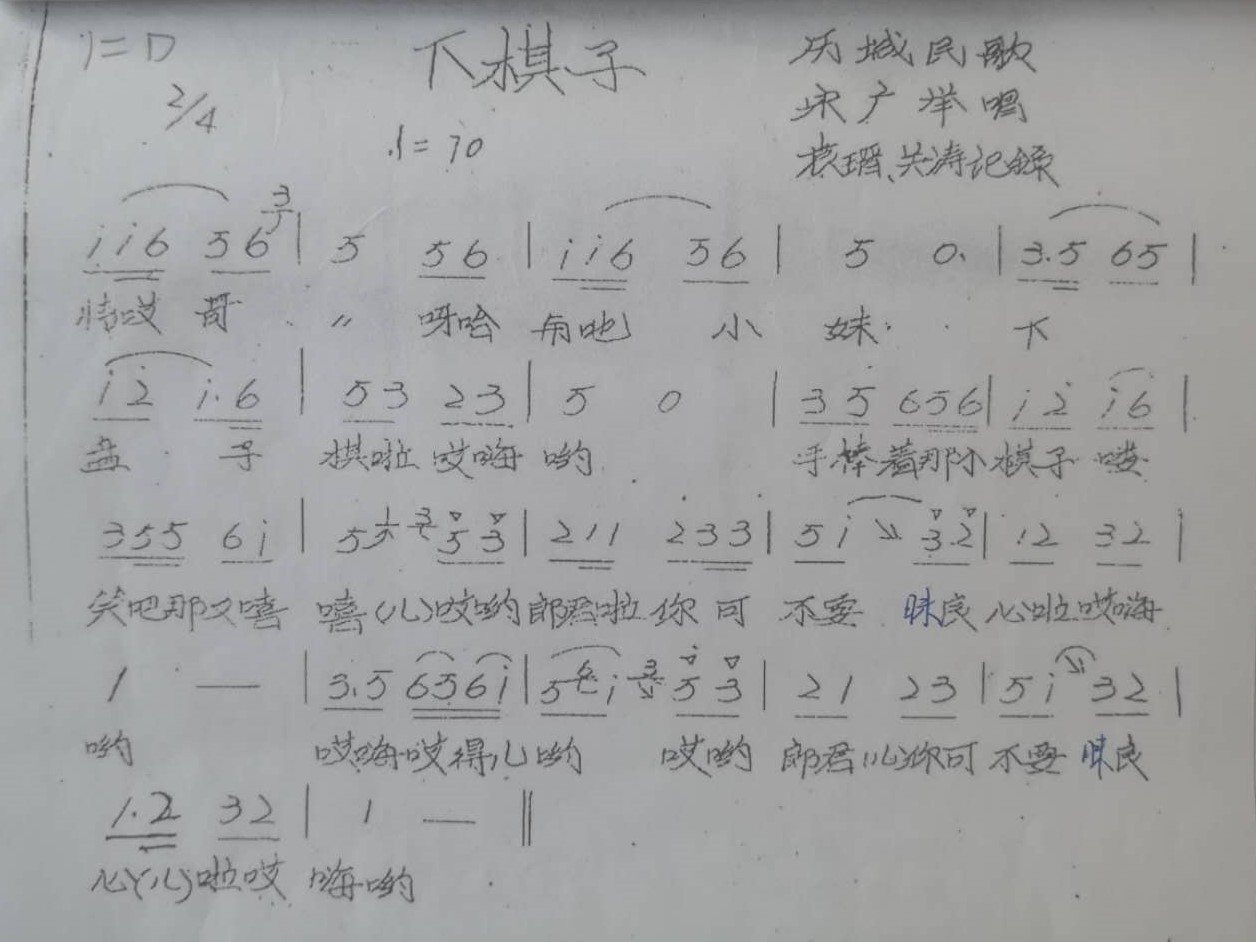 1=D 下棋子 历城民歌
2/4 宋广洋唱
♩=70 记录
i i 6 5 6 | 5 5 6 | i i 6 5 6 | 5 0. | 3.5 6 5 |
情哎哥 〃 呀哈 小妹 下
i 2 i.6 | 5 3 2 3 | 5 0 | 3 5 6 5 6 | i 2 i 6 |
盘子 棋啦哎嗨哟 手棒着那小棋子喽
3 5 5 6 i | 5 5 3 | 2 1 1 2 3 3 | 5 i 3 2 | 1 2 3 2 |
笑吧那又嘻 嘻(儿)哎哟郎君啦你可不要昧良心啦哎嗨
1 — | 3.5 6 5 6 i | 5 6 i 5 3 | 2 1 2 3 | 5 i 3 2 |
哟 哎嗨哎得儿哟 哎哟 郎君儿你可不要昧良
1.2 3 2 | 1 — ‖
心(儿)啦哎嗨哟